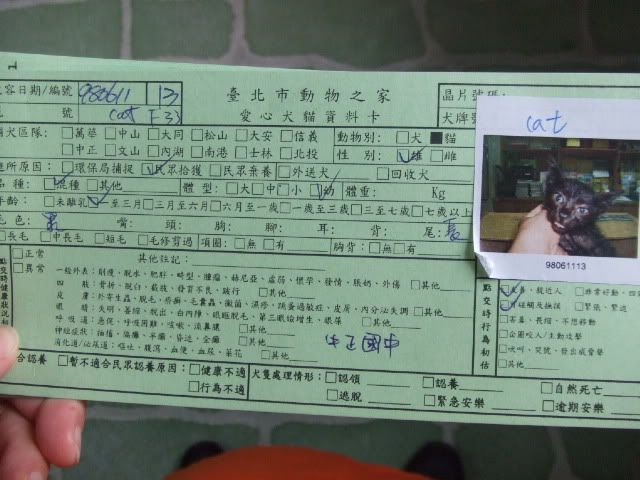 容日期/編號 980611 13 臺北市動物之家 晶片號碼:
號 cat F33 愛心犬貓資料卡 犬牌號
犬區隊: □萬華 □中山 □大同 □松山 □大安 □信義 動物別: □犬 ■貓
□中正 □文山 □內湖 □南港 □士林 □北投 性別: □雄 □雌
所原因: □環保局捕捉 □民眾拾獲 □民眾棄養 □外送犬 □回收犬
品種: □混種 □其他 體型: □大 □中 □小 □幼 體重: Kg
年齡: □未離乳 □至三月 □三月至六月 □六月至一歲 □一歲至三歲 □三至七歲 □七歲以上
毛色: 黑 嘴: 頭: 胸: 腳: 耳: 背: 尾: 長
□長毛 □中長毛 □短毛 □毛修剪過 項圈: □無 □有 胸背: □無 □有
□正常 其他註記:
□異常
點交時健康狀況初
一般外表: 削瘦、脫水、肥胖、畸型、腫瘤、赫尼亞、虛弱、懷孕、發情、脹奶、外傷 □其他
四肢: 骨折、脫臼、截肢、發育不良、跛行 □其他
皮膚: 外寄生蟲、脫毛、疥癬、毛囊蟲、黴菌、濕疹、跳蚤過敏症、皮屑、內分泌失調 □其他
眼睛: 失明、萎縮、脫出、白內障、眼瞼脫毛、第三眼瞼增生、眼屎 □其他
呼吸道: 急促、呼吸困難、咳嗽、流鼻膿 □其他
神經症狀: 抽搐、偏癱、半癱、昏迷、全癱 □其他
消化道/泌尿道: 嘔吐、腹瀉、血便、血尿、菜花 □其他
中正國中
合認養 □暫不適合民眾認養原因: □健康不適 □行為不適
犬隻處理情形: □認領 □認養 □自然死亡
□逃脫 □緊急安樂 □逾期安樂
cat
98061113
點交時行為初估
□友善、親近人 □非常好動、
□可碰觸及撫摸 □緊張、緊迫
□害羞、畏縮、不想移動
□企圖咬人/主動攻擊
□吠叫、哭號、發出威脅聲
□其他